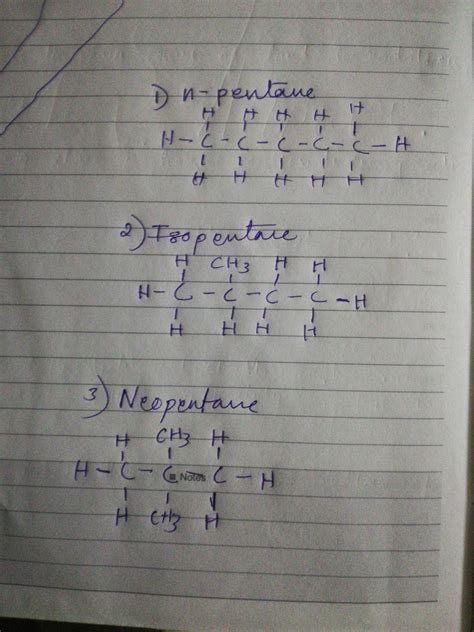 1) n-pentane
H H H H H
H - C - C - C - C - C - H
H H H H H
2) Isopentane
H CH3 H H
H - C - C - C - C - H
H H H H
3) Neopentane
H CH3 H
H - C - C - C - H
≡ Notes
H CH3 H